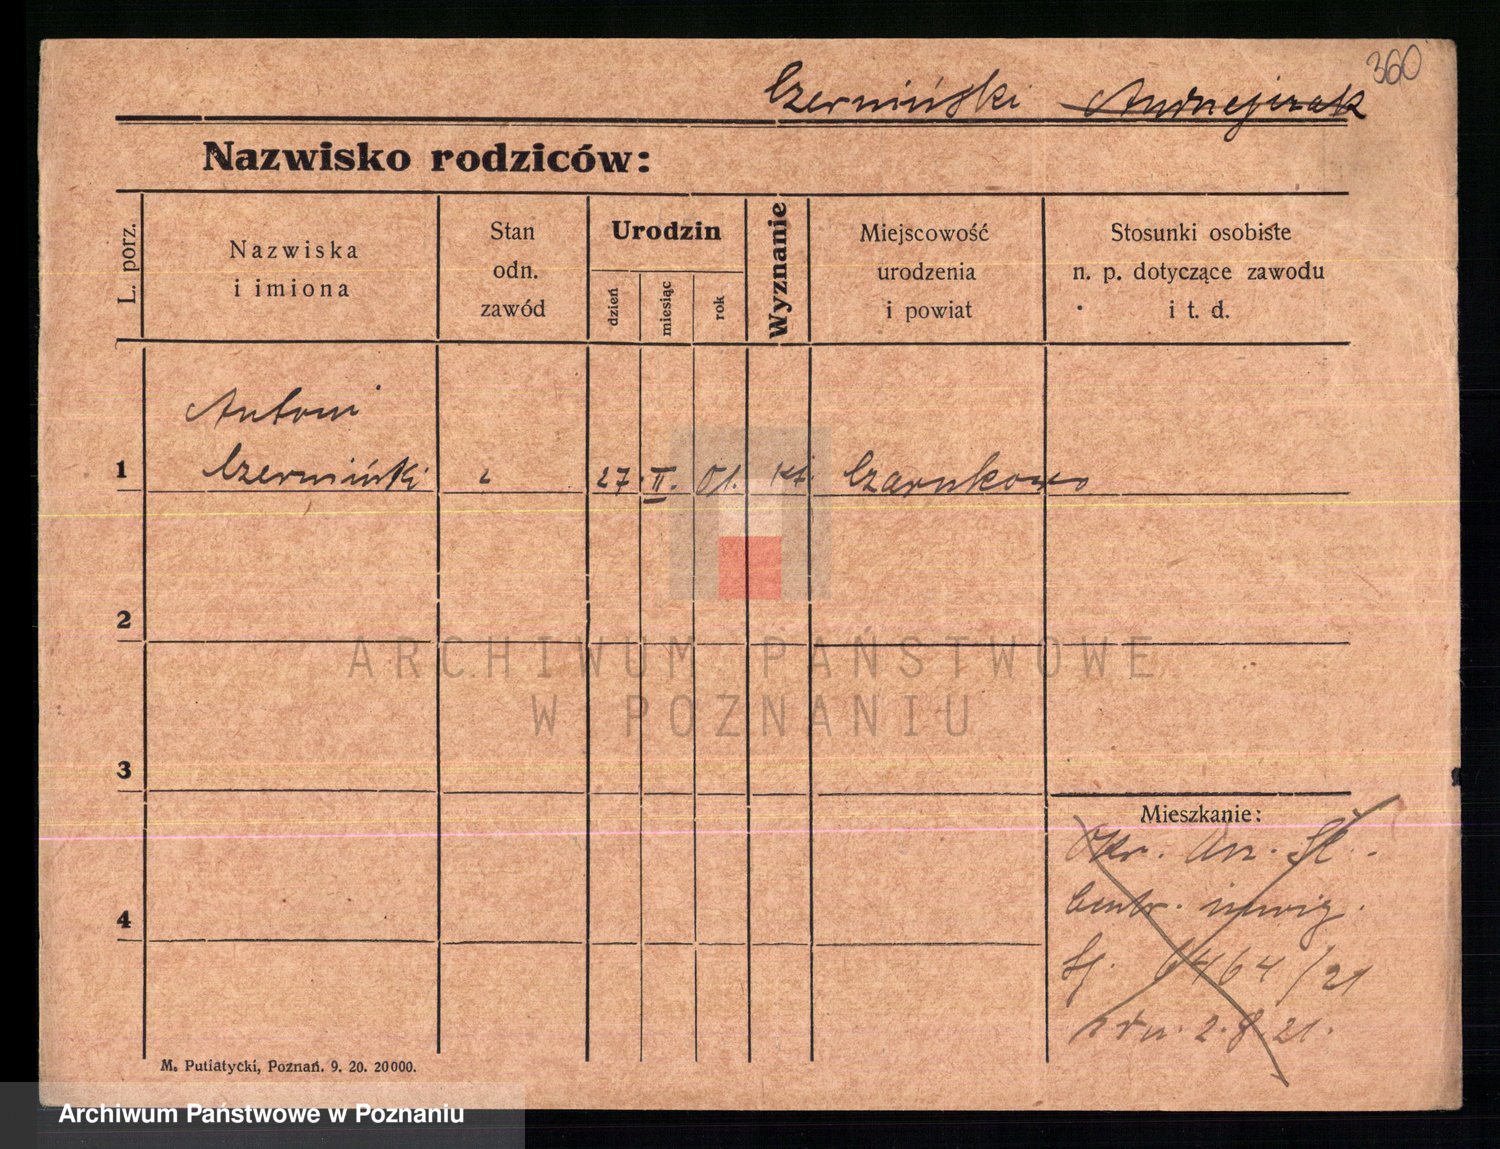 360
Czermiński Andrzejczak
Nazwisko rodziców:
L. porz.
Nazwiska
i imiona
Stan
odn.
zawód
Urodzin
dzień
miesiąc
rok
Wyznanie
Miejscowość
urodzenia
i powiat
Stosunki osobiste
n. p. dotyczące zawodu
i t. d.
Antoni
1 Czermiński 27. II. 01. kt. Czarnkowo
2
3
Mieszkanie:
Okr. Urz. Śl.
Centr. inwig.
4
Lj. 6464/21
z dn. 2.8.21.
M. Putiatycki, Poznań. 9. 20. 20000.
ARCHIWUM PAŃSTWOWE
W POZNANIU
Archiwum Państwowe w Poznaniu